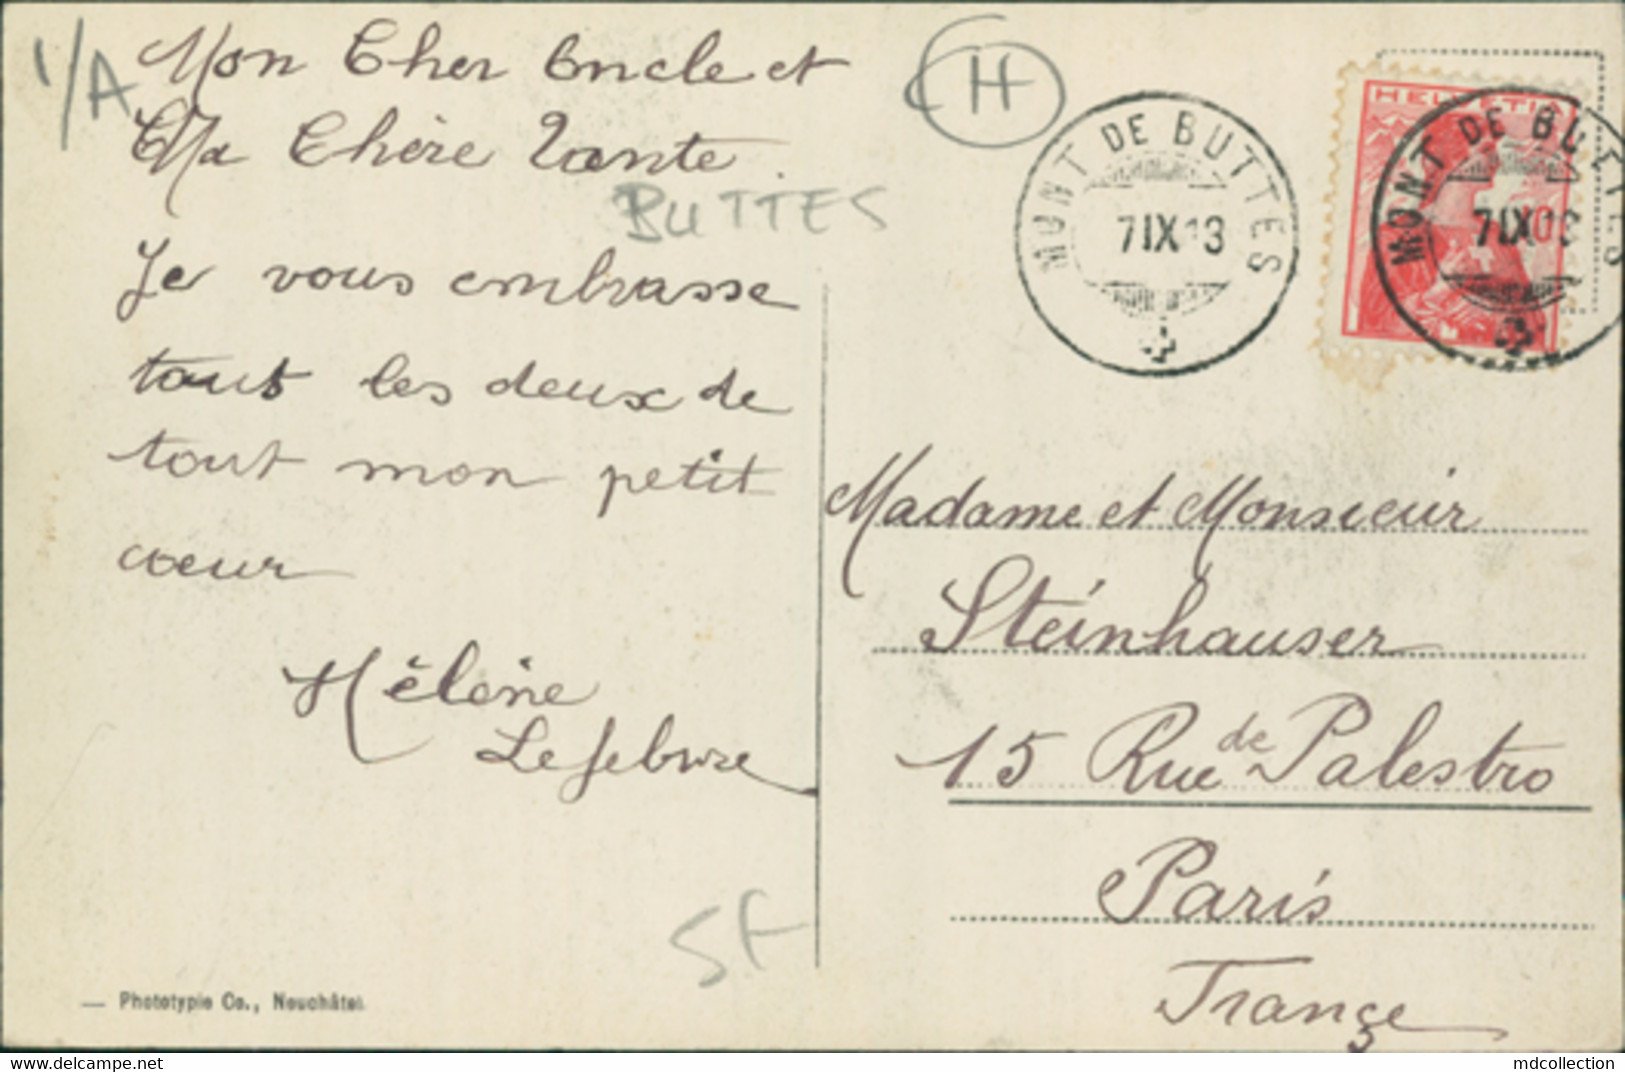 1/A
Mon Cher Oncle et
Ma Chère Tante.
BUTTES
Je vous embrasse
tous les deux de
tout mon petit
cœur
Hélène
Lefebvre
5f
Phototypie Co., Neuchâtel
H
MONT DE BUTTES
7 IX 13
HELVETIA
MONT DE BUTTES
7 IX 13
Madame et Monsieur
Steinhauser
15 Rue de Palestro
Paris
France
delcampe.net
mdcollection